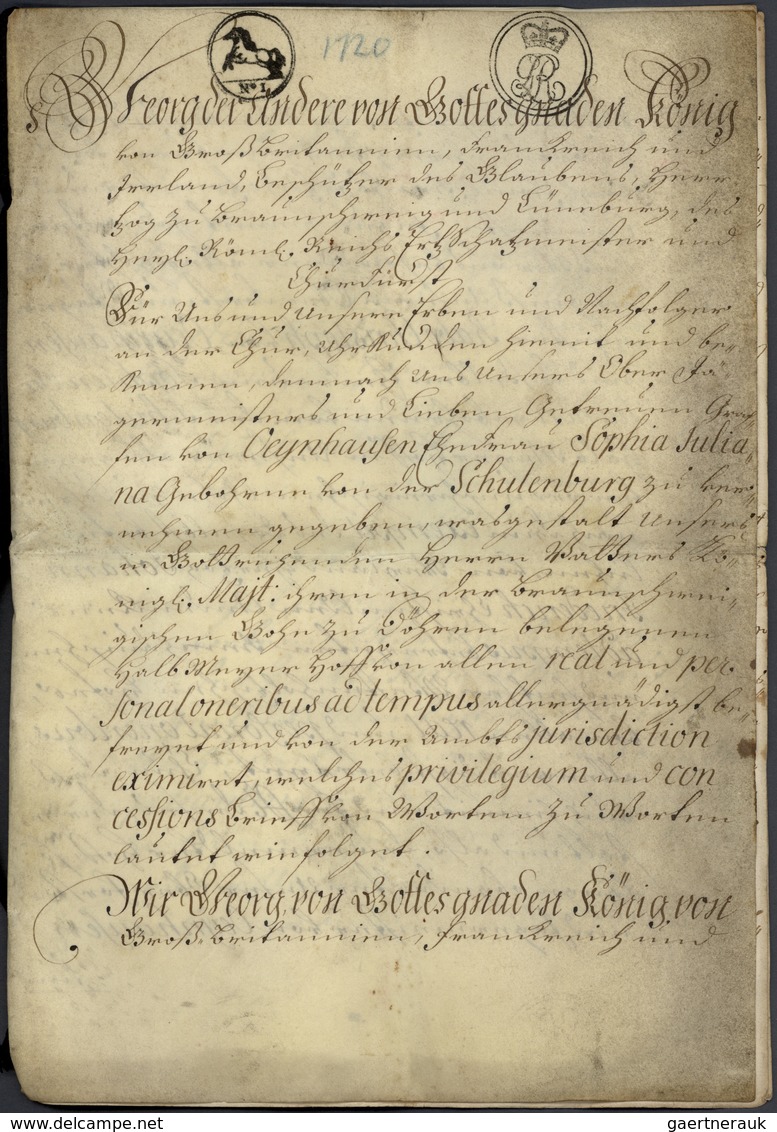 N° 1.
1720
GR
Georg der Andere von Gottes gnaden König
von Großbritannien, Franckreich und
Irrland, Beschützer des Glaubens, Hertz-
zog zu Braunschweig und Lüneburg, des
Heyl: Röml: Reichs ErtzSchatzmeister und
Churfürst
Für Uns und Unsere Erben und Nachfolger
an der Chur, Uhrkunden hiemit und be-
kennen, demnach Uns Unsers Ober Jä-
germeisters und Lieben Getreuen Graf-
fen von Oeynhausen Ehefrau Sophia Julia-
na Gebohrne von der Schulenburg zu ver-
nehmen gegeben, wasgestalt Unsers
in Gott ruhenden Herrn Vatters Kö-
nigl: Majt: ihren in der Braunschwei-
gischen Gohe zu Döhren belegenen
Halb Meyer Hoff von allen real und per-
sonal oneribus ad tempus allergnädigst be-
freyet und von der Ambts jurisdiction
eximiret, welches privilegium und con
cessions Brieff von Worten zu Worten
lautet wie folget.
Wir Georg, von Gottes gnaden König, von
Groß-Britannien, Franckreich und
www.delcampe.net
gaertnerauk